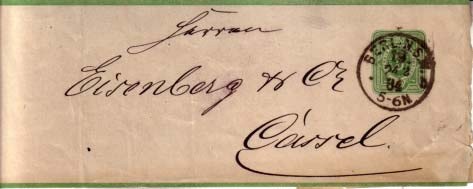 Herren
Eisenberg & Co
Cassel.
BERLIN S.W
84
5-6N